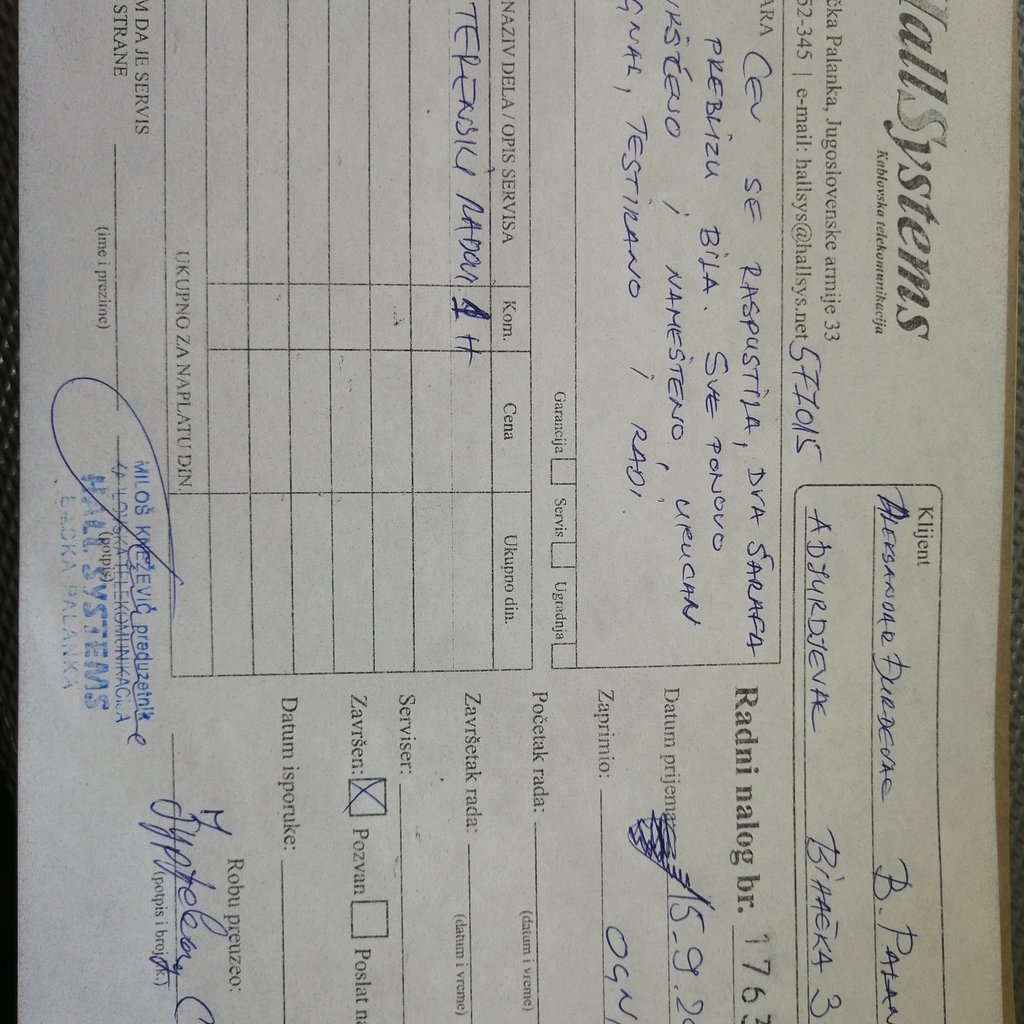 HallSystems
Kablovska telekomunikacija
čka Palanka, Jugoslovenske armije 33
52-345 | e-mail: hallsys@hallsys.net
577015
Klijent
ALEKSANDAR ĐURĐEVAC B. PALAN
ADJURDJEVAC BIHAĆKA 3
ARA CEV SE RASPUSTILA, DVA ŠARAFA
PREBLIZU BILA. SVE PONOVO
IKŠĆENO I NAMEŠTENO, URUČAN
GNAL, TESTIRANO I RADI.
Garancija Servis Ugradnja
NAZIV DELA / OPIS SERVISA Kom. Cena Ukupno din.
TERENSKI RADOVI 1 H
UKUPNO ZA NAPLATU DIN
M DA JE SERVIS
STRANE
(ime i prezime)
(potpis)
MILOŠ KNEŽEVIĆ preduzetnik
KABLOVSKA TELEKOMUNIKACIJA
HALL SYSTEMS
BAČKA PALANKA
Radni nalog br. 1763
Datum prijema: 15.9.20
Zaprimio: OGNJ
Početak rada:
(datum i vreme)
Završetak rada:
(datum i vreme)
Serviser:
Završen: X Pozvan Poslat na
Datum isporuke:
Robu preuzeo:
(potpis i broj lk.)